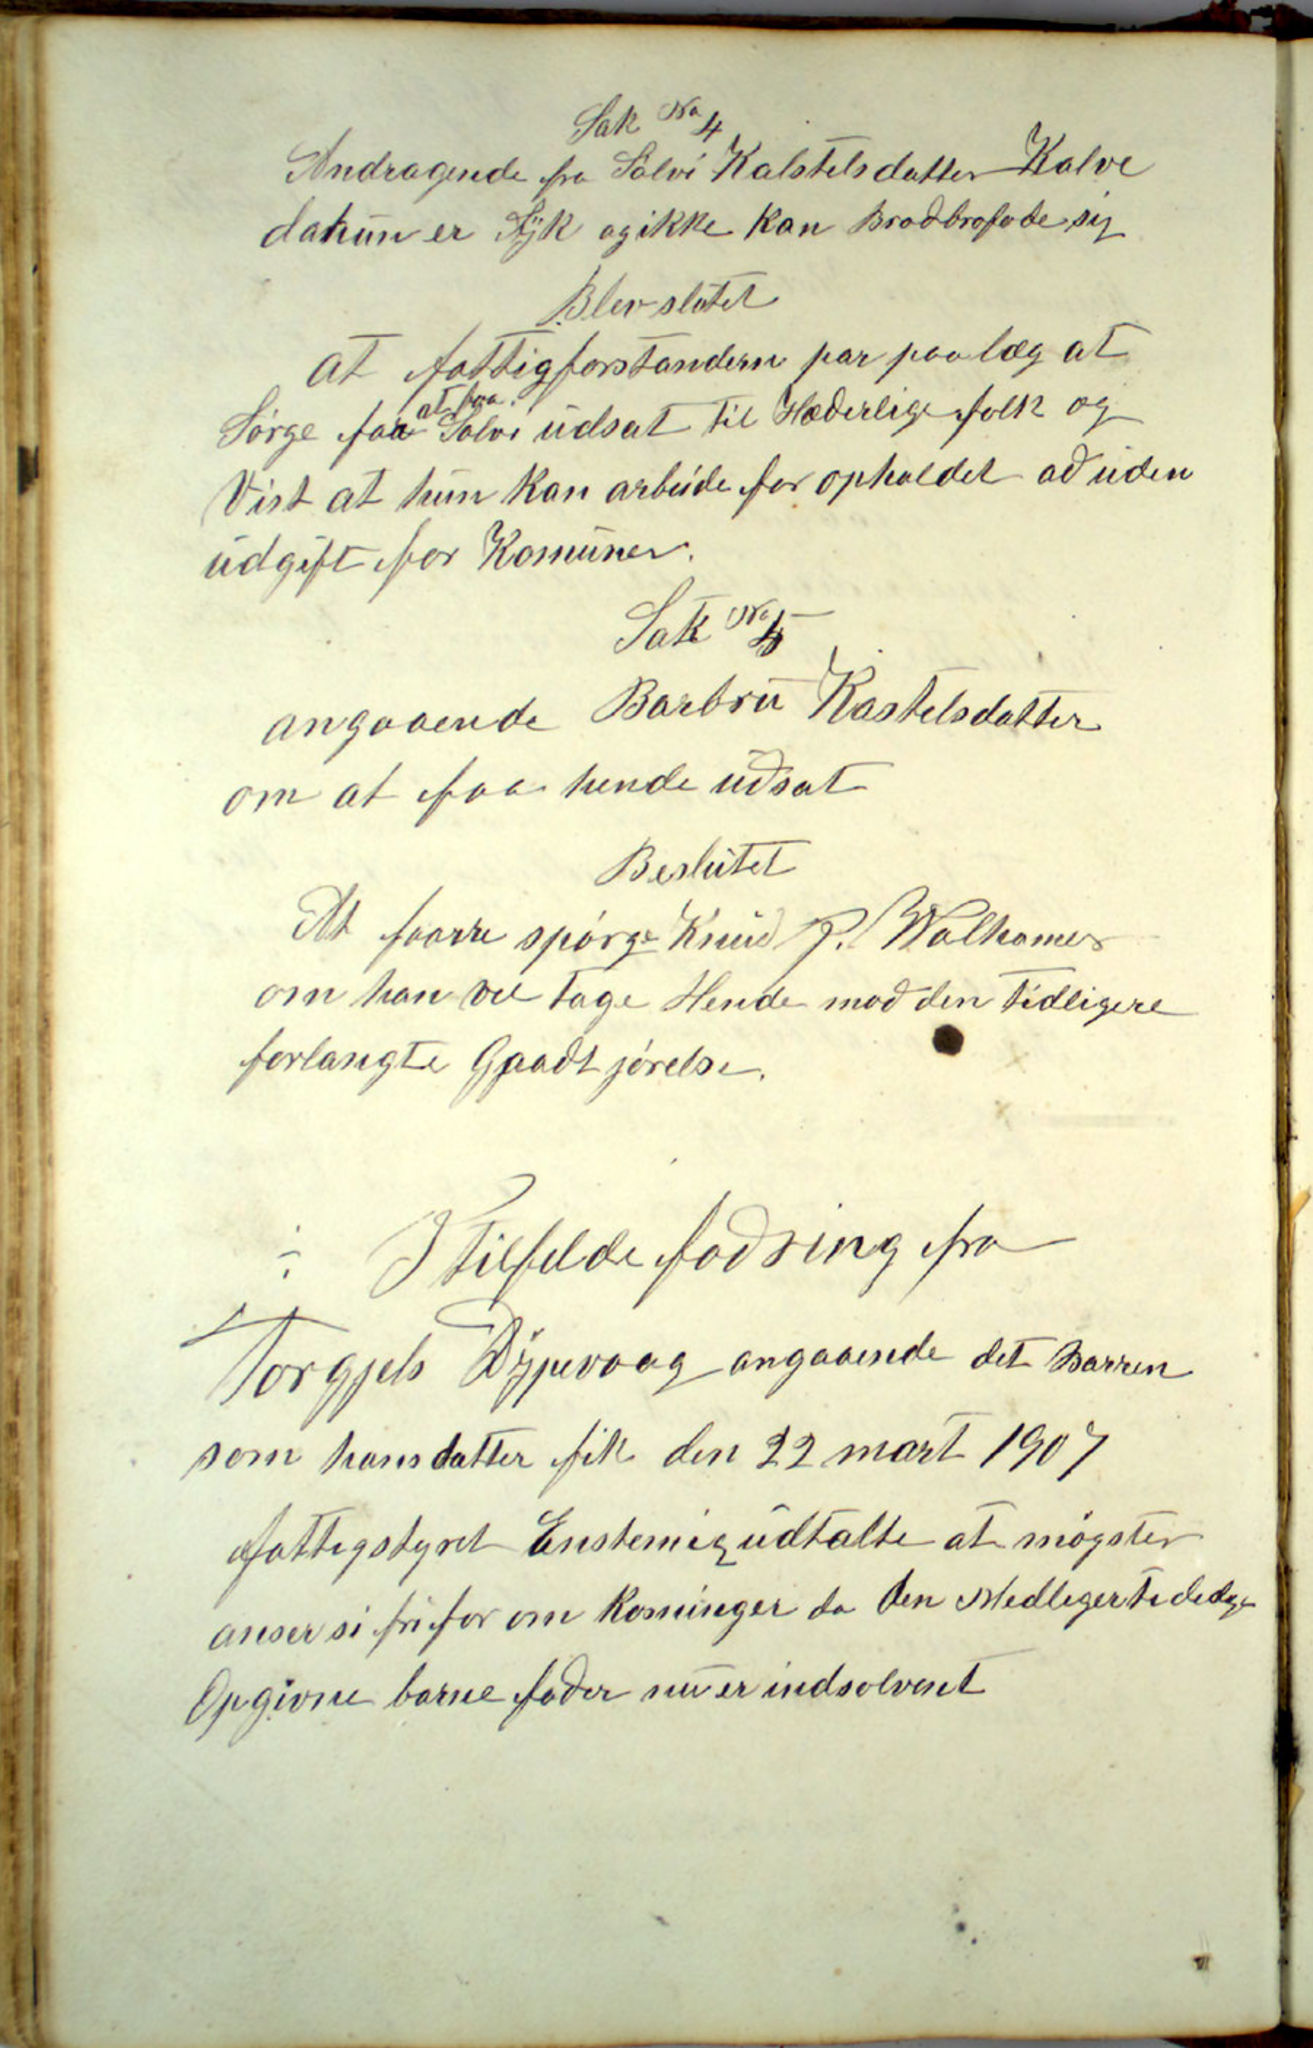 Sak No 4
Andragende fra Sølvi Kalstelsdatter Kalve
dahun er Syk og ikke kan Brødbrøføde sig
Blev slutet
at fattigforstandern par paalæg at
Sørge faa at faa Sølvi udsat til Hæderlige folk og
Vist at hun kan arbeide for opholdet ad uden
udgift for Komunen.
Sak No 5
angaaende Barbru Kastelsdatter
om at faa hende udsat
Beslutet
At faarre spørge Knud P. Walhamer
om han vil tage Hende mod den tidligere
forlangte Gpadtjørelse.
÷ I tilfelde fodring fra
Torgjels Dypevaag angaaende det barren
som hans datter fik den 22 mart 1907
fattigstyret Enstemig udtalte at møgster
anser si fri for om komunger da den Medliger
Opgivne barne fader nu er indsolvent